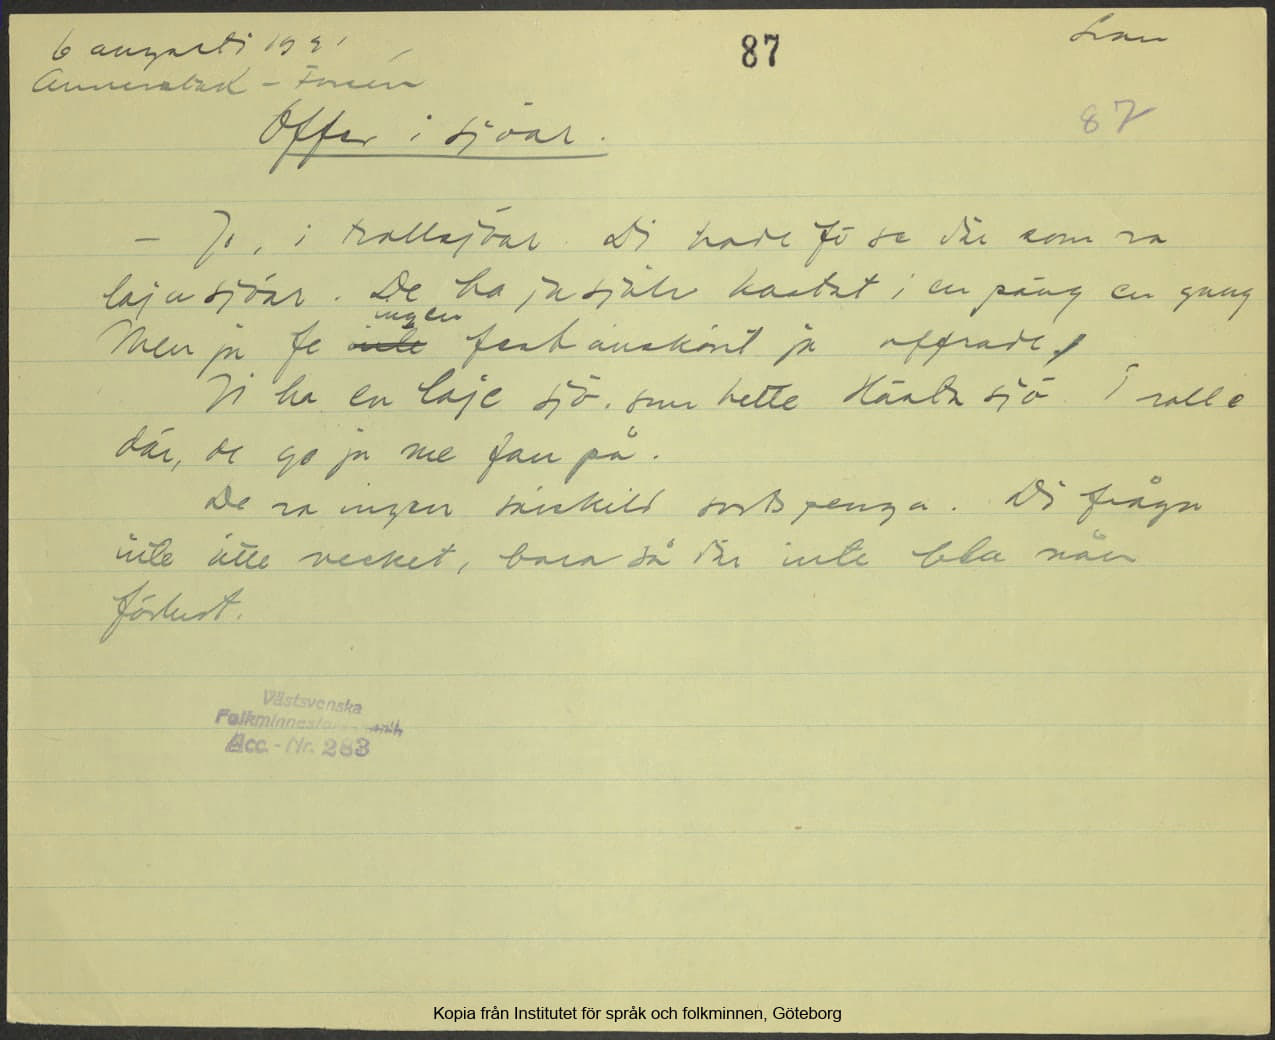 6 augusti 19
87
87
Offer i sjöar.
– Jo, i trollsjöar. Di hade fö se där som va
låja sjöar. De ha ja själv kastat i en päng en gang
Men ja fe ingen fast önskönt ja offrade.
Vi ha en låje sjö. som hette sjö. Trolle
där, de go ja me fan på.
De va ingen särskild sorts penga. Di fråga
inte ätte vecket, bara så där inte ble nåen
förlust.
Västsvenska
Acc.-Nr. 283
Kopia från Institutet för språk och folkminnen, Göteborg